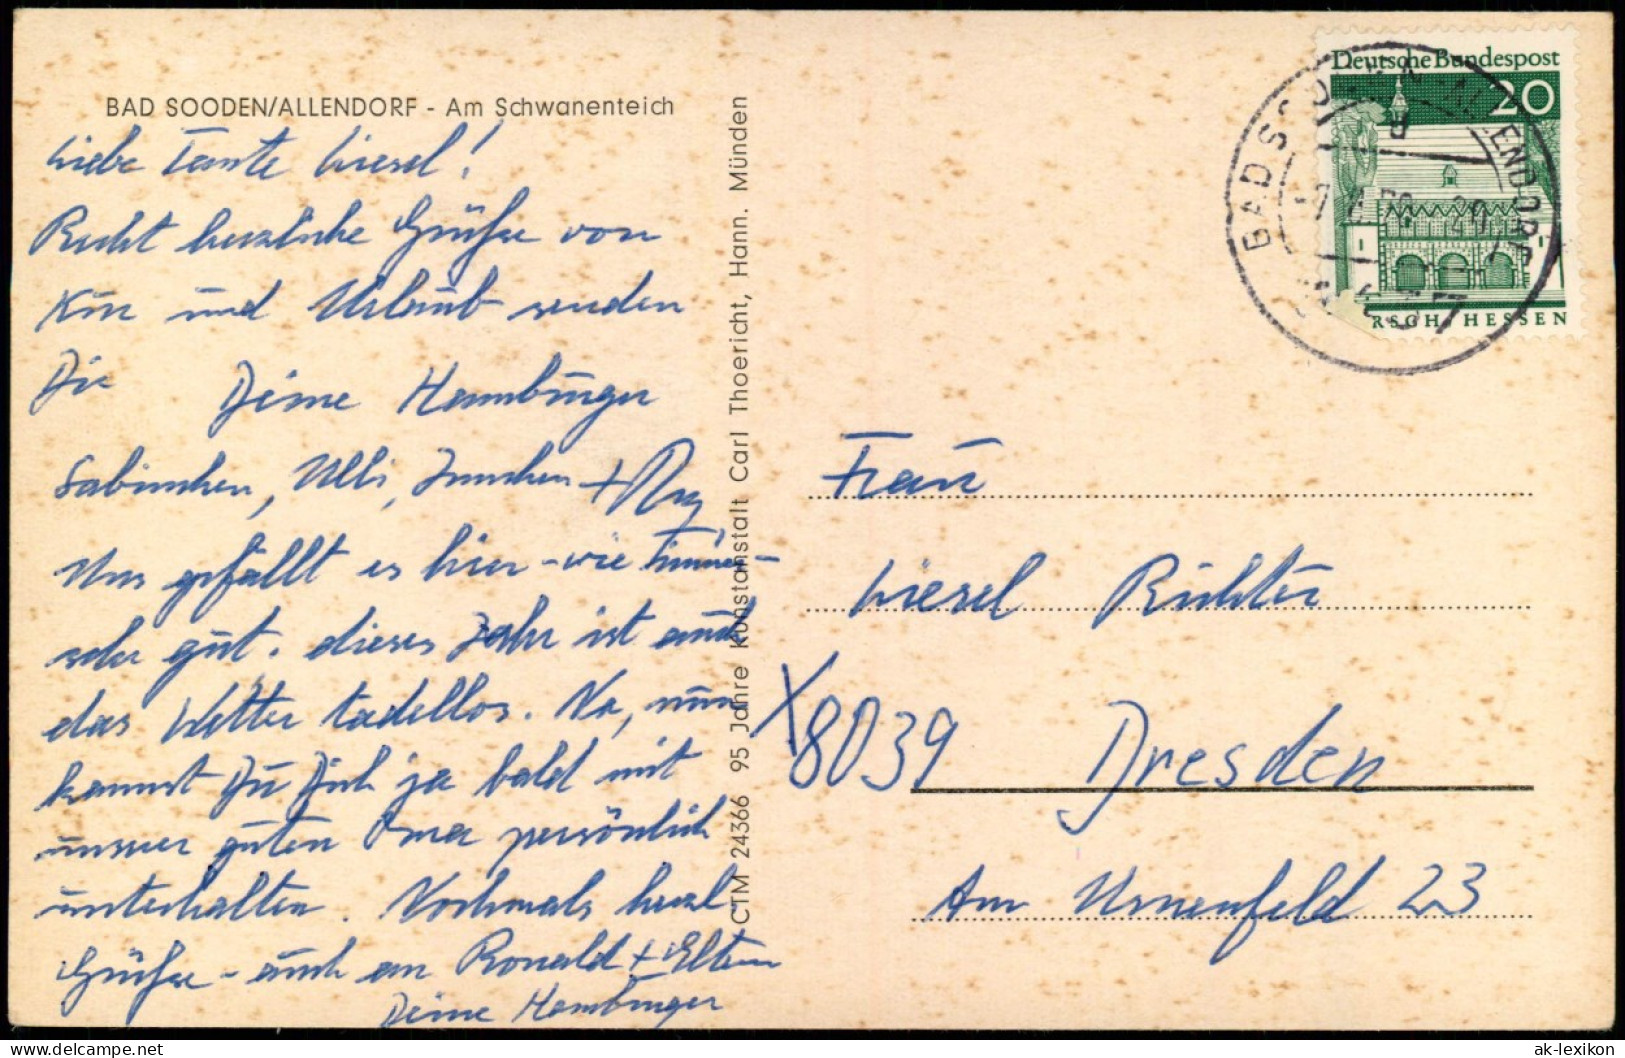 BAD SOODEN/ALLENDORF - Am Schwanenteich
Liebe Tante Liesel!
Recht herzliche Grüße von
Kur und Urlaub senden
Dir Deine Hamburger
Sabinchen, Ulli, Innchen +
Uns gefällt es hier - wie immer -
sehr gut. dieses Jahr ist auch
das Wetter tadellos. Na, nun
kannst Du Dich ja bald mit
unserer guten Oma persönlich
unterhalten. Nochmals herzl.
Grüße - auch an Ronald + Eltern
Deine Hamburger
CTM 24366 95 Jahre Kunstanstalt Carl Thoericht, Hann. Münden
Deutsche Bundespost
20
RSCH/HESSEN
BAD SOODEN-ALLENDORF
d
Frau
Liesel Richter
X8039 Dresden
Am Urnenfeld 23
delcampe.net
ak-lexikon